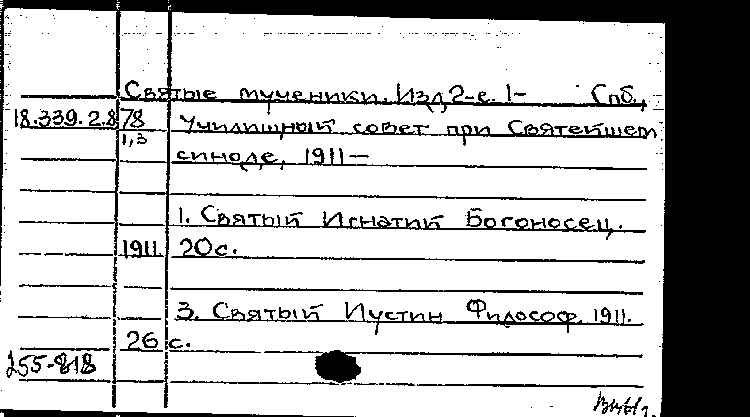 Святые мученики. Изд. 2-е. 1- Спб.,
18.339.2.878 Училищный совет при Святейшем
1,3
синоде, 1911—
1. Святый Игнатий Богоносец.
1911. 20с.
3. Святый Иустин Философ. 1911.
26 с.
255-818